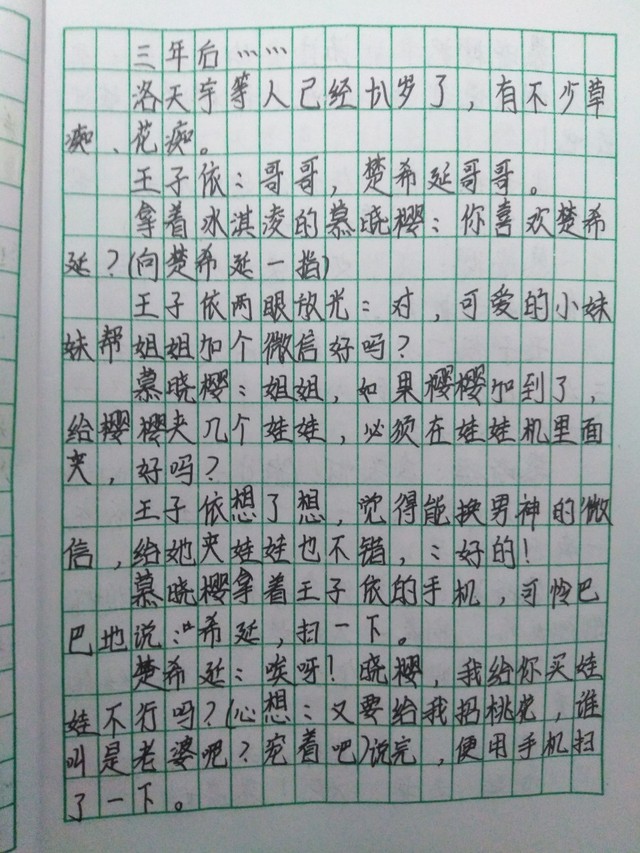 三年后……
洛天宇等人已经扒岁了，有不少草
痴、花痴。
王子依：哥哥，楚希延哥哥。
拿着冰淇凌的慕晓樱：你喜欢楚希
延？(向楚希延一挡)
王子依两眼放光：对，可爱的小妹
妹帮姐姐加个微信好吗？
慕晓樱：姐姐，如果樱樱加到了，
给樱樱夹几个娃娃，必须在娃娃机里面
夹，好吗？
王子依想了想，觉得能换男神的微
信，给她夹娃娃也不错，：好的！
慕晓樱拿着王子依的手机，可怜巴
巴地说：“希延，扫一下。
楚希延：唉呀！晓樱，我给你买娃
娃不行吗？(心想：又要给我招桃花，谁
叫是老婆呢？宠着吧)说完，便用手机扫
了一下。